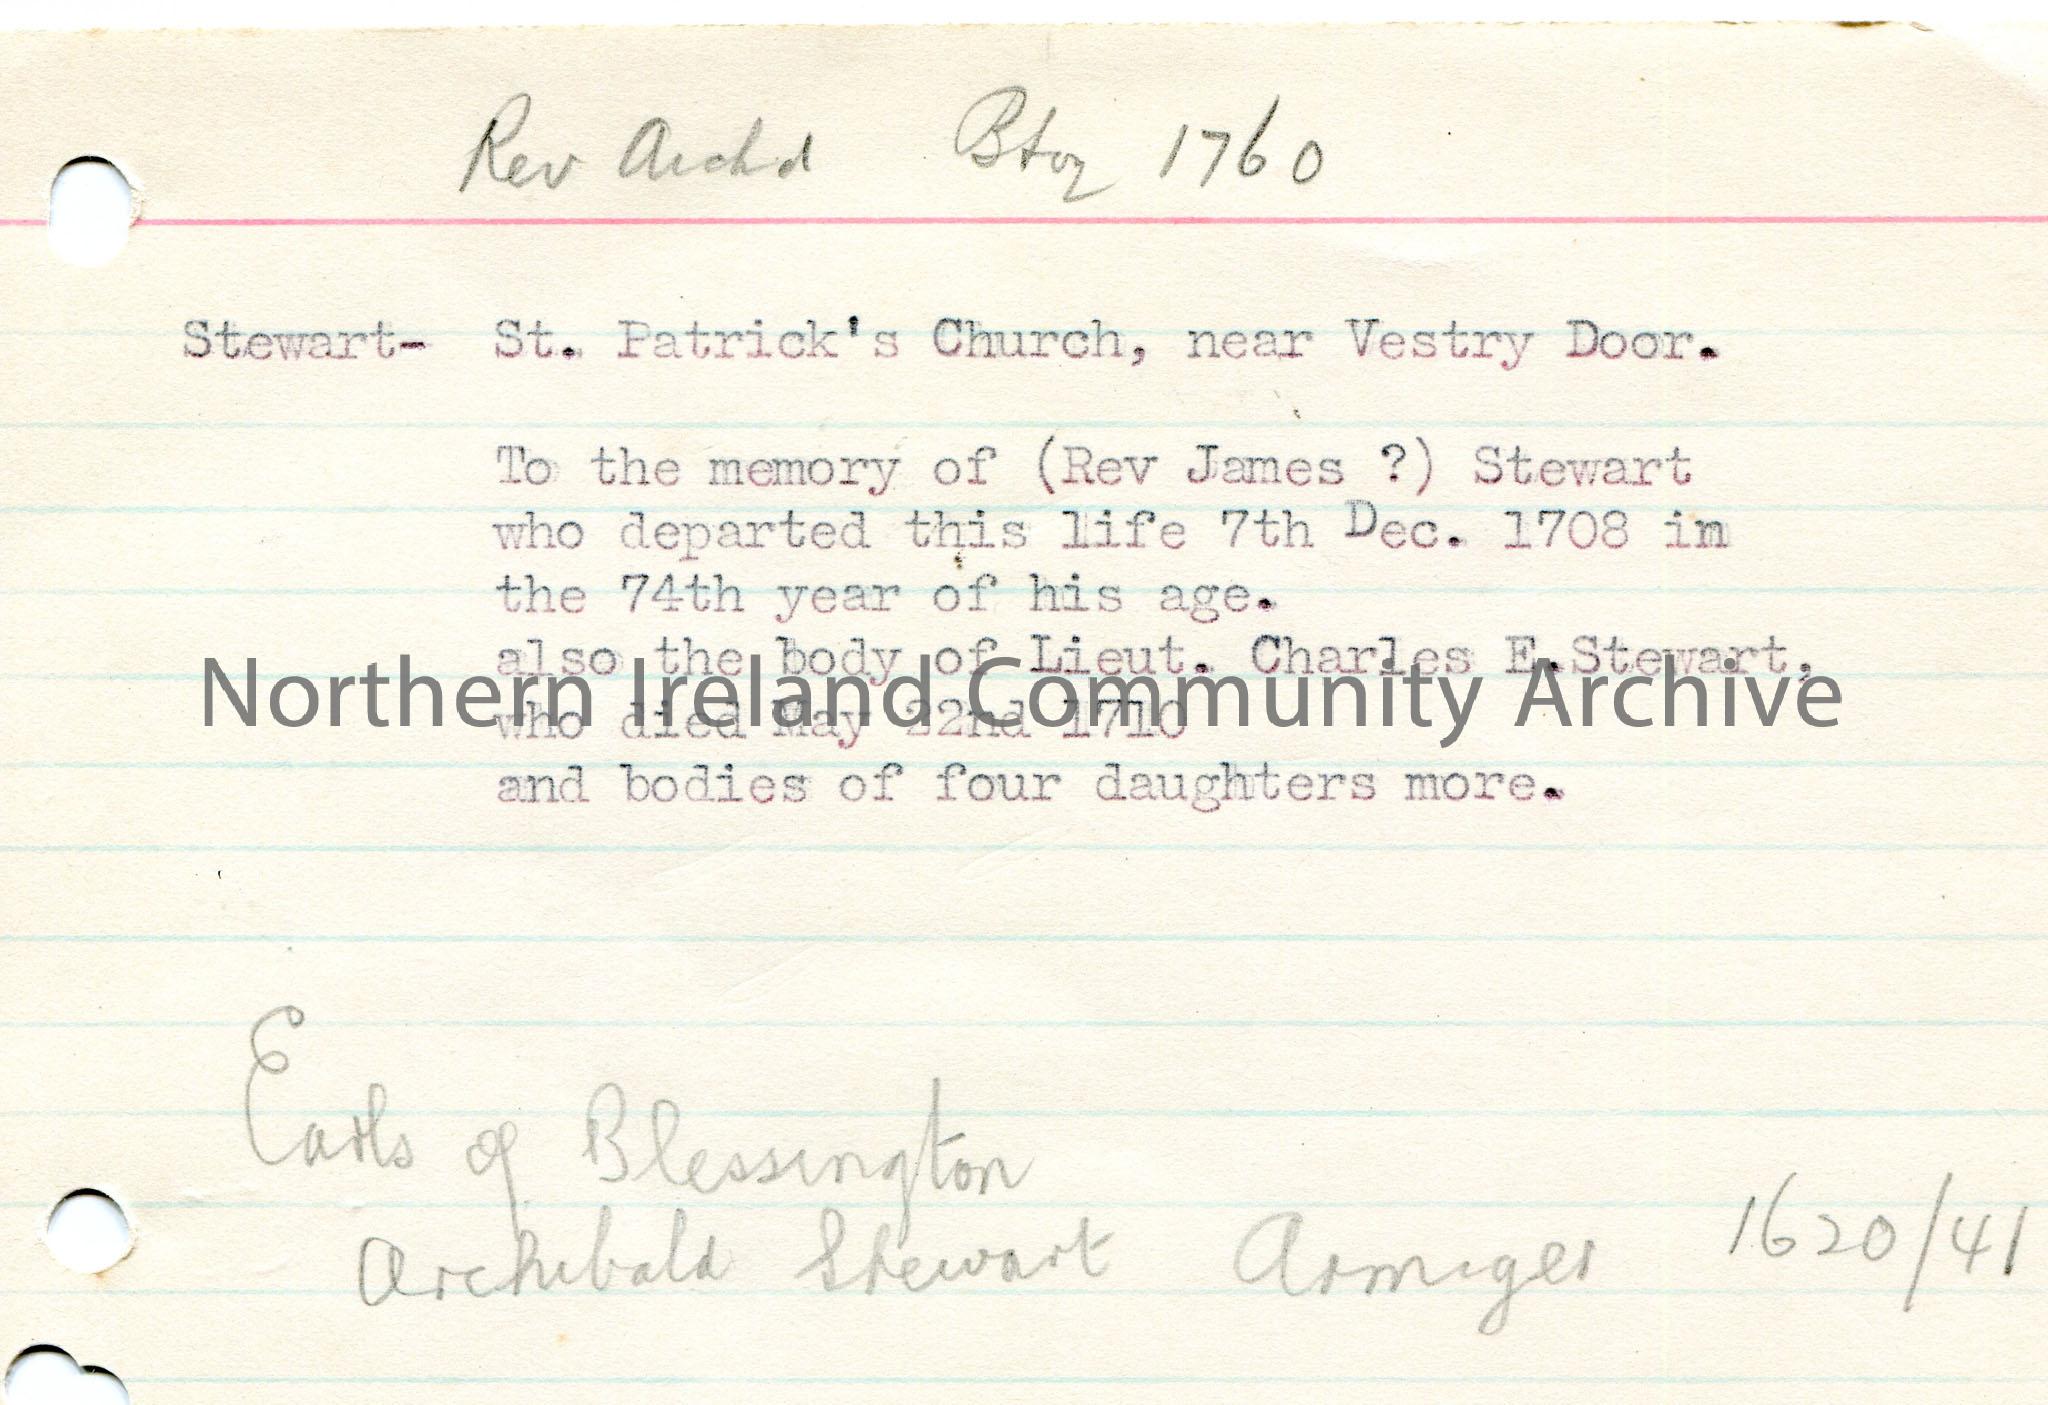 Rev Archd Btoy 1760
Stewart- St. Patrick's Church, near Vestry Door.
To the memory of (Rev James ?) Stewart
who departed this life 7th Dec. 1708 in
the 74th year of his age.
also the body of Lieut. Charles E.Stewart,
Northern Ireland Community Archive
who died May 22nd 1710
and bodies of four daughters more.
Earls of Blessington
Archibald Stewart Armiger 1620/41